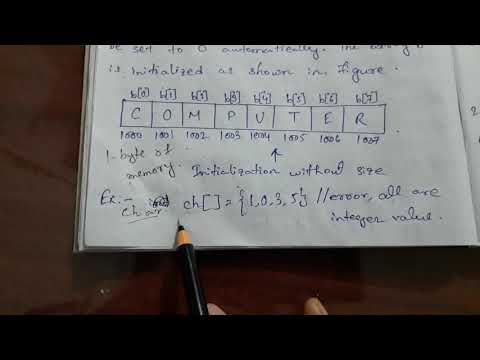 be set to 0 automatically. The array b
is initialized as shown in figure.
b[0] b[1] b[2] b[3] b[4] b[5] b[6] b[7]
C O M P U T E R
1000 1001 1002 1003 1004 1005 1006 1007
1-byte of
memory.
Initialization without size
Ex. - char ch[] = {1,0,3,5} //error, all are
integer value.